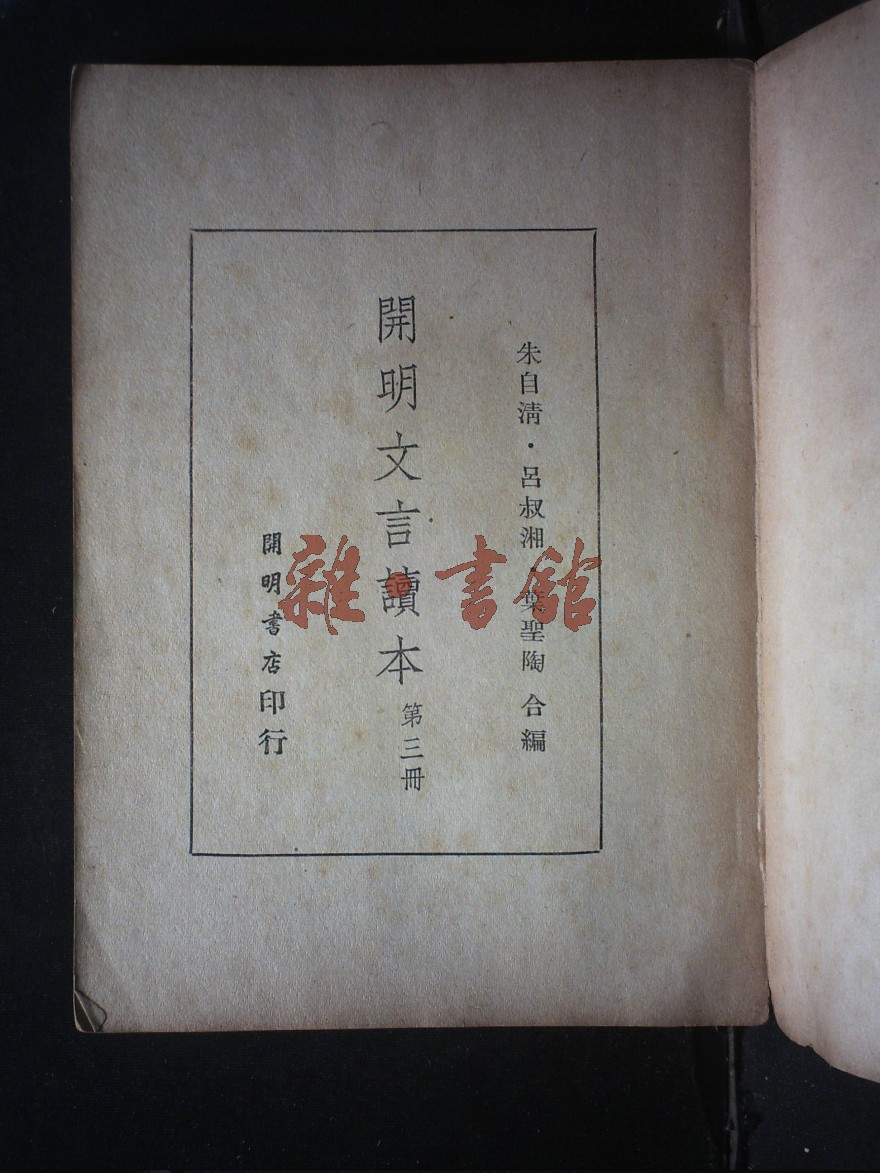 朱自清・呂叔湘・葉聖陶 合編
開明文言讀本 第三冊
開明書店印行
雜・書館